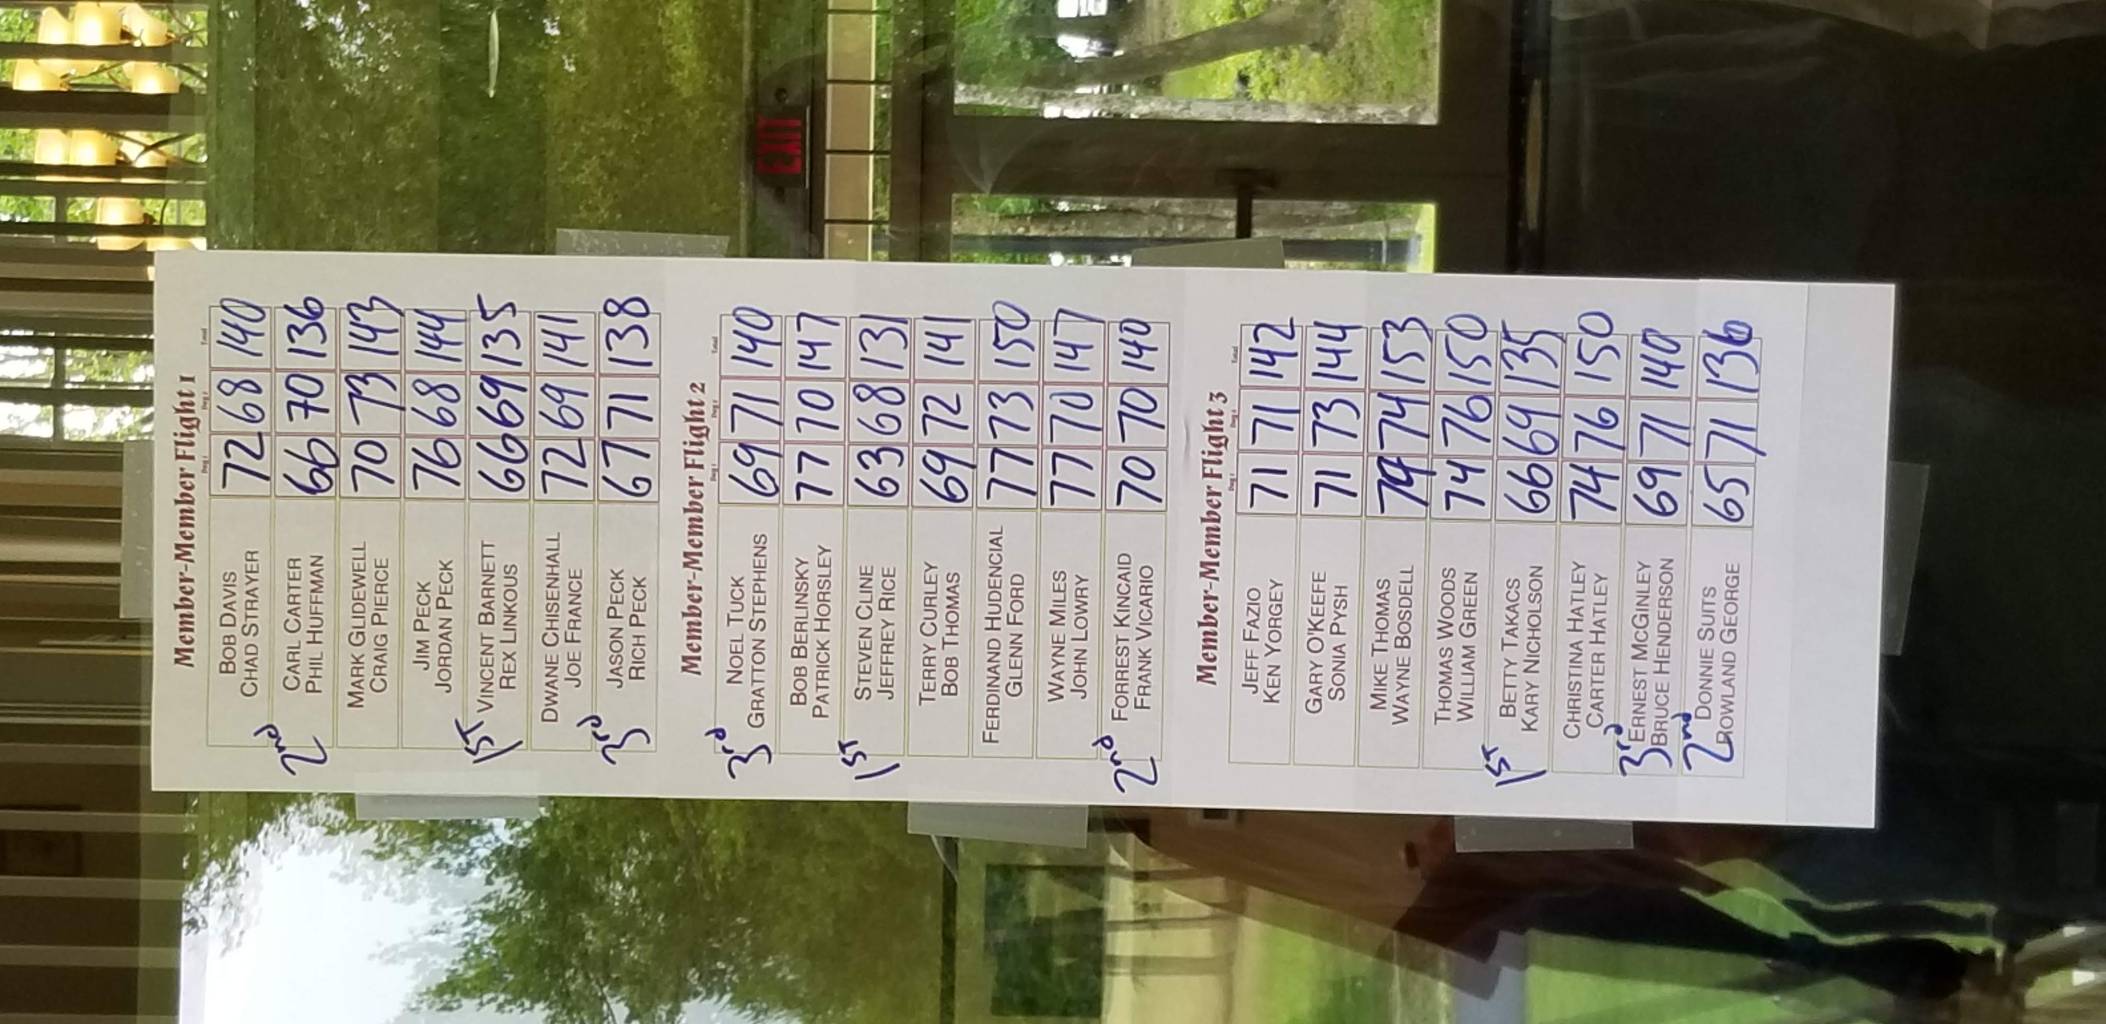 Member-Member Flight 1
Day 1 Day 2 Total
BOB DAVIS
CHAD STRAYER
72 68 140
2nd
CARL CARTER
PHIL HUFFMAN
66 70 136
MARK GLIDEWELL
CRAIG PIERCE
70 73 143
JIM PECK
JORDAN PECK
76 68 144
1ST
VINCENT BARNETT
REX LINKOUS
66 69 135
DWANE CHISENHALL
JOE FRANCE
72 69 141
3rd
JASON PECK
RICH PECK
67 71 138
Member-Member Flight 2
Day 1 Day 2 Total
3rd
NOEL TUCK
GRATTON STEPHENS
69 71 140
BOB BERLINSKY
PATRICK HORSLEY
77 70 147
1ST
STEVEN CLINE
JEFFREY RICE
63 68 131
TERRY CURLEY
BOB THOMAS
69 72 141
FERDINAND HUDENCIAL
GLENN FORD
77 73 150
WAYNE MILES
JOHN LOWRY
77 70 147
2nd
FORREST KINCAID
FRANK VICARIO
70 70 140
Member-Member Flight 3
Day 1 Day 2 Total
JEFF FAZIO
KEN YORGEY
71 71 142
GARY O'KEEFE
SONIA PYSH
71 73 144
MIKE THOMAS
WAYNE BOSDELL
79 74 153
THOMAS WOODS
WILLIAM GREEN
74 76 150
1ST
BETTY TAKACS
KARY NICHOLSON
66 69 135
CHRISTINA HATLEY
CARTER HATLEY
74 76 150
3rd
ERNEST MCGINLEY
BRUCE HENDERSON
69 71 140
2nd
DONNIE SUITS
ROWLAND GEORGE
65 71 136
EXIT